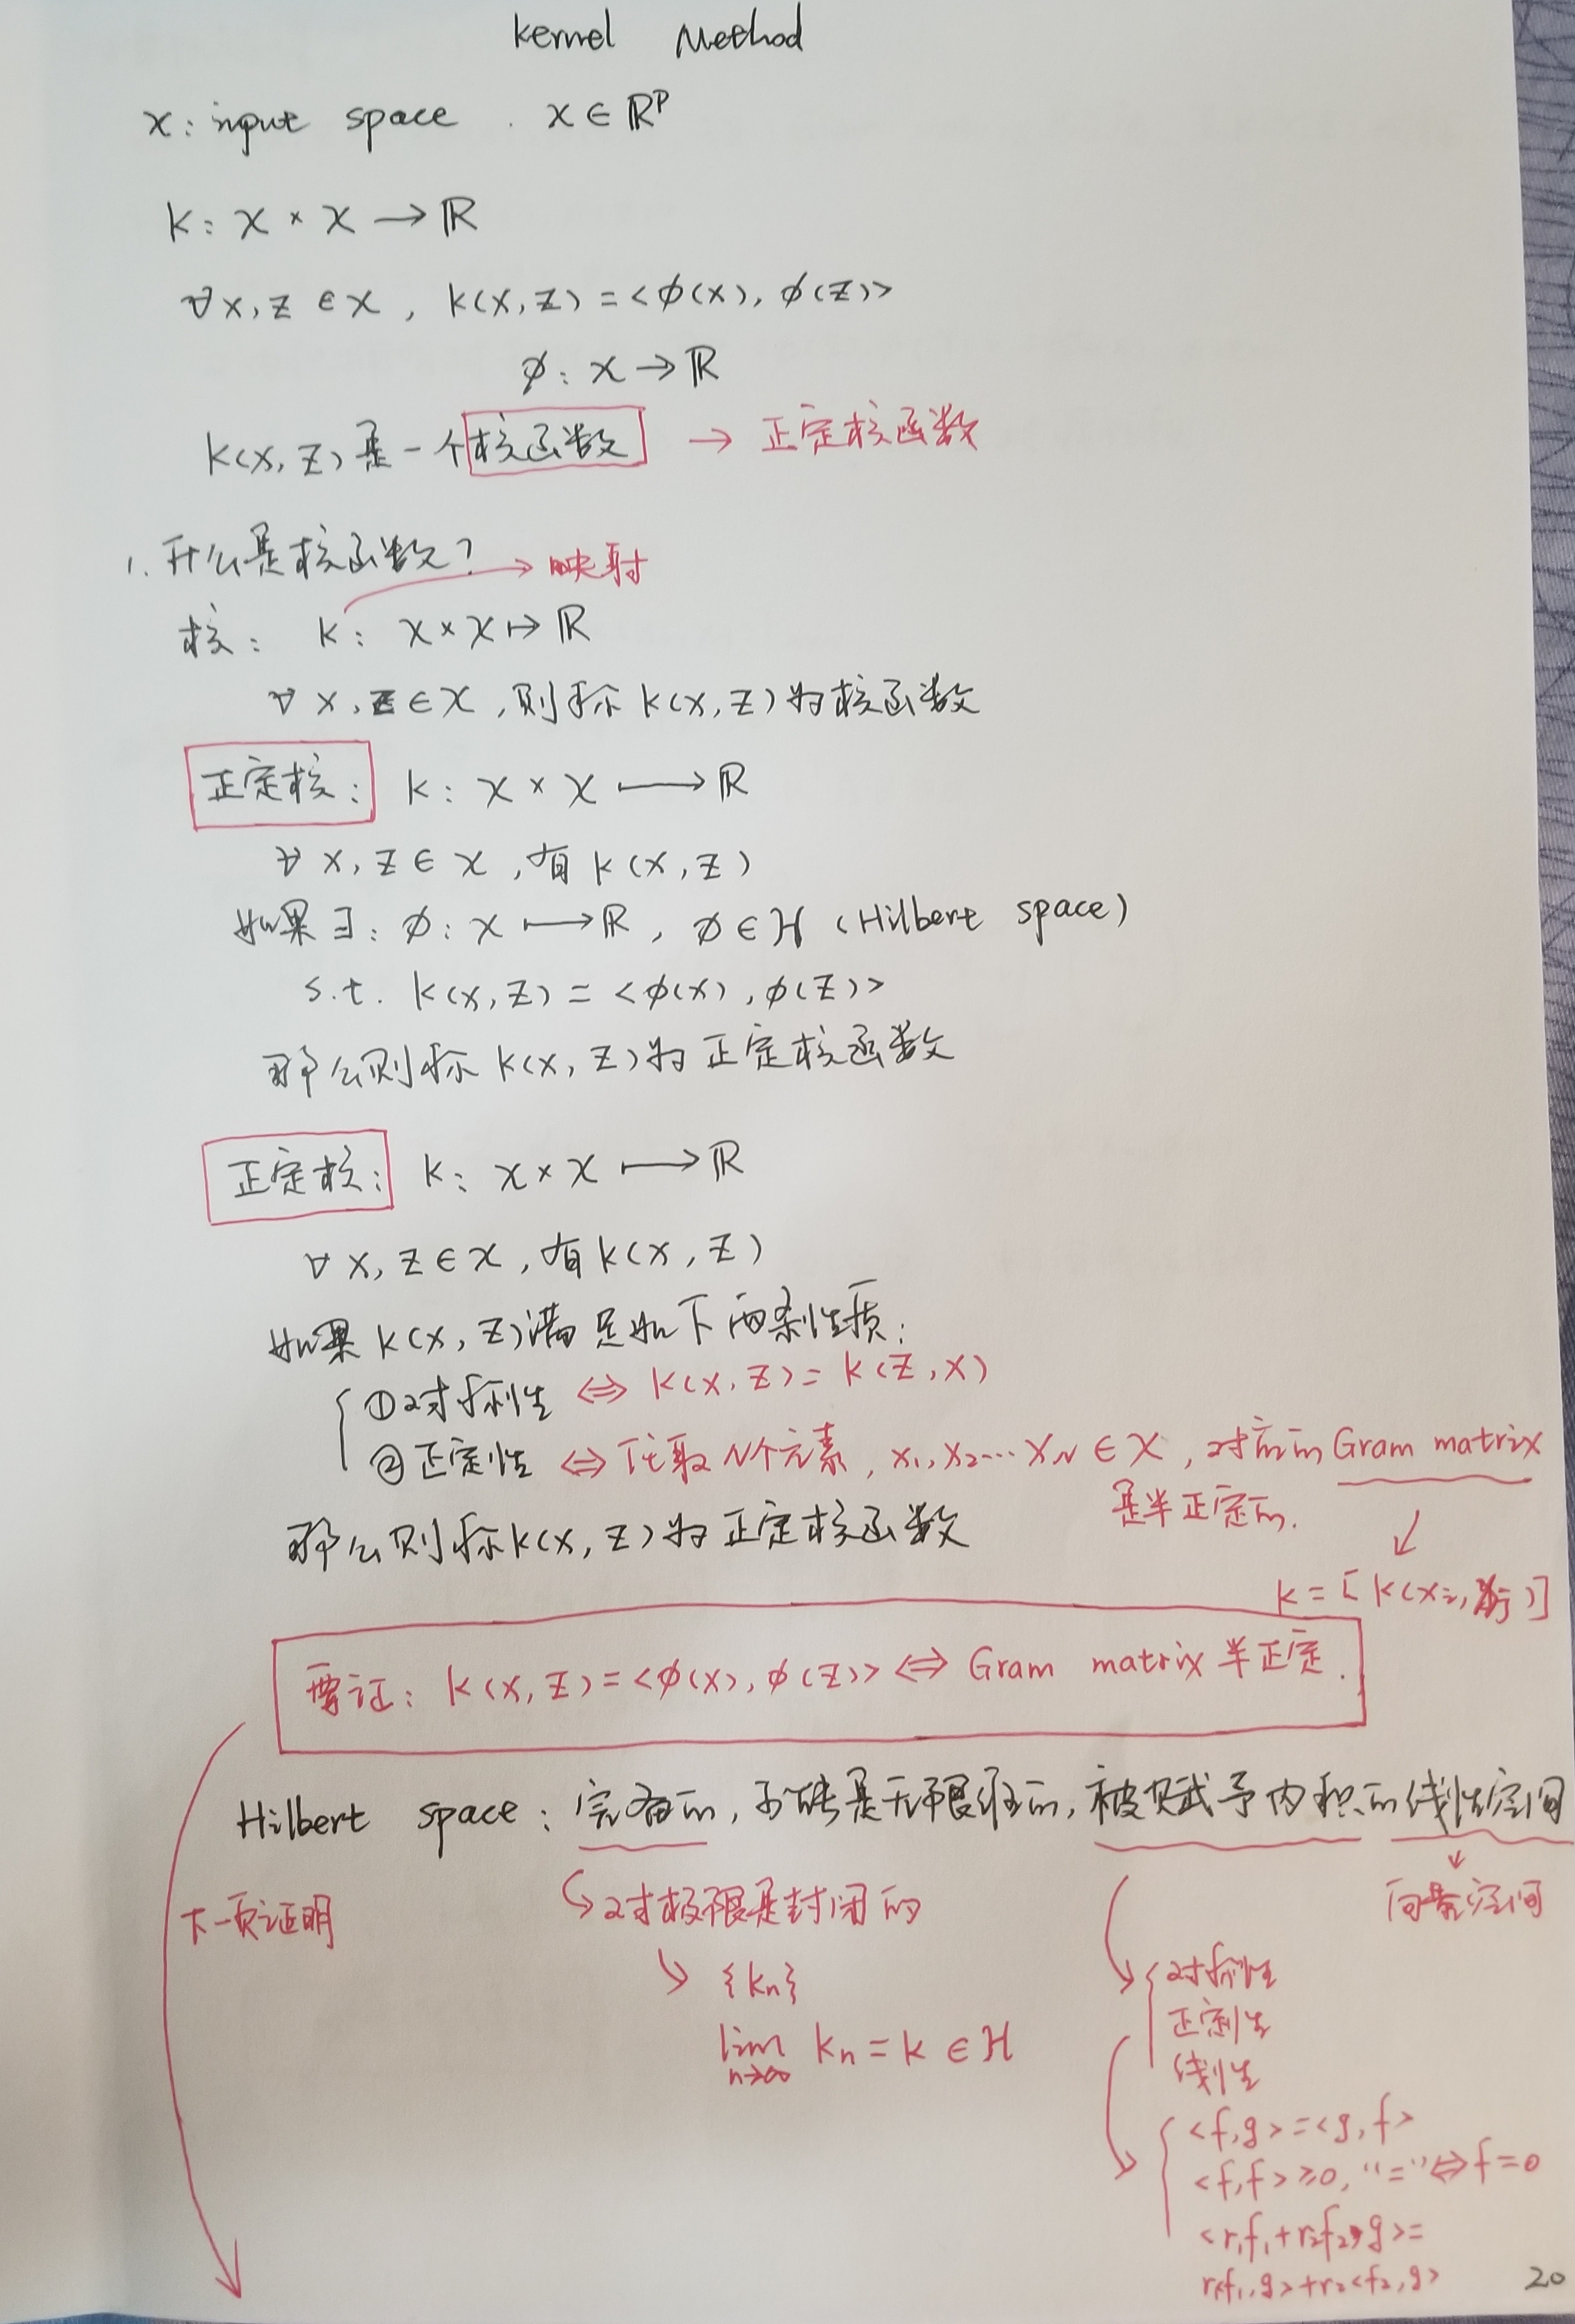 Kernel Method
X: input space . x ∈ ℝᵖ
k: X × X → ℝ
∀x, z ∈ X, k(x, z) = <φ(x), φ(z)>
φ: X → ℝ
k(x, z) 是一个核函数 → 正定核函数
1. 什么是核函数?
→ 映射
核: k: X × X ↦ ℝ
∀ x, z ∈ X, 则称 k(x, z) 为核函数
正定核: k: X × X ⟼ ℝ
∀ x, z ∈ X, 有 k(x, z)
如果 ∃: φ: X ⟼ ℝ, φ ∈ H (Hilbert space)
s.t. k(x, z) = <φ(x), φ(z)>
那么则称 k(x, z) 为正定核函数
正定核: k: X × X ⟼ ℝ
∀ x, z ∈ X, 有 k(x, z)
如果 k(x, z) 满足如下两条性质:
① 对称性 ⇔ k(x, z) = k(z, x)
② 正定性 ⇔ 任取 N个元素, x₁, x₂ ⋯ x_N ∈ X, 对应的 Gram matrix
是半正定的.
那么则称 k(x, z) 为正定核函数
k = [k(xᵢ, xⱼ)]
要证: k(x, z) = <φ(x), φ(z)> ⇔ Gram matrix 半正定.
Hilbert space: 完备的, 可能是无限维的, 被赋予内积的线性空间
下一页证明
对极限是封闭的
向量空间
{kₙ}
lim n→∞ kₙ = k ∈ H
对称性
正定性
线性
<f, g> = <g, f>
<f, f> ≥ 0, “=” ⇔ f = 0
<r₁f₁ + r₂f₂, g> =
r₁<f₁, g> + r₂<f₂, g>
20